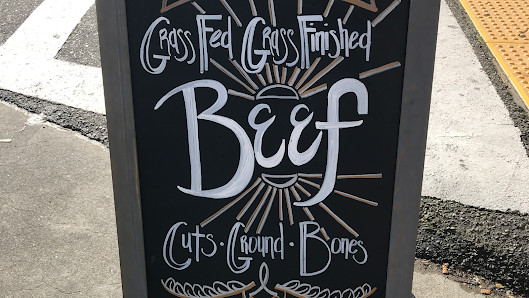 Grass Fed Grass Finished
Beef
Cuts · Ground · Bones